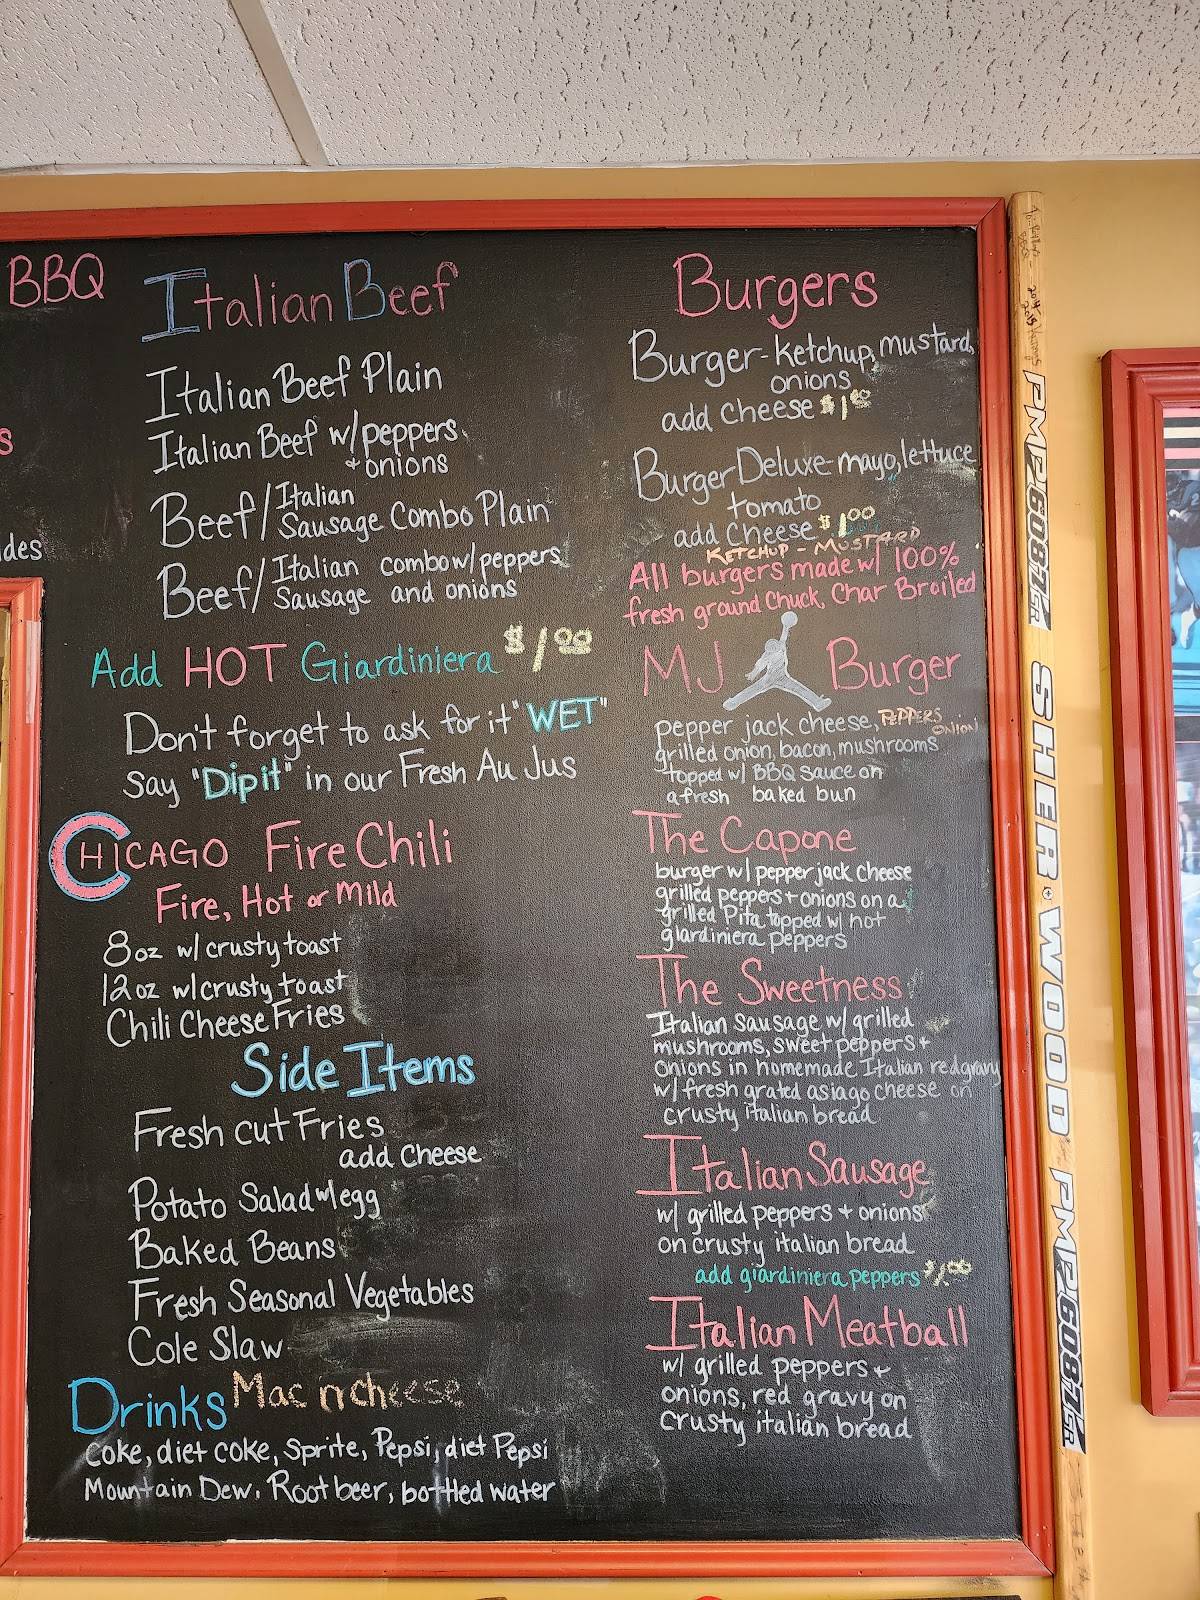 BBQ
s
des
Italian Beef
Italian Beef Plain
Italian Beef w/peppers
+ onions
Beef/Italian Sausage Combo Plain
Beef/Italian Sausage combo w/peppers and onions
Add HOT Giardiniera $1.00
Don't forget to ask for it "WET"
say "Dip it" in our Fresh Au Jus
CHICAGO Fire Chili
Fire, Hot or Mild
8oz w/ crusty toast
12oz w/crusty toast
Chili Cheese Fries
Side Items
Fresh cut Fries
add cheese
Potato Salad w/egg
Baked Beans
Fresh Seasonal Vegetables
Cole Slaw
Mac n cheese
Drinks
coke, diet coke, Sprite, Pepsi, diet Pepsi
Mountain Dew, Root beer, bottled water
Burgers
Burger - ketchup, mustard,
onions
add cheese $1.00
Burger Deluxe - mayo, lettuce
tomato
add Cheese $1.00
KETCHUP - MUSTARD
All burgers made w/ 100%
fresh ground Chuck, Char Broiled
MJ Burger
pepper jack cheese, PEPPERS ONION
grilled onion, bacon, mushrooms
topped w/ BBQ Sauce on
a fresh baked bun
The Capone
burger w/ pepper jack cheese
grilled peppers + onions on a
grilled Pita topped w/ hot
giardiniera peppers
The Sweetness
Italian sausage w/ grilled
mushrooms, sweet peppers +
onions in homemade Italian red gravy
w/ fresh grated asiago cheese on
crusty italian bread
Italian Sausage
w/ grilled peppers + onions
on crusty italian bread
add giardiniera peppers $1.00
Italian Meatball
w/ grilled peppers +
onions, red gravy on
crusty italian bread
PMP 6087 SR
SHER-WOOD
PMP 6087 SR